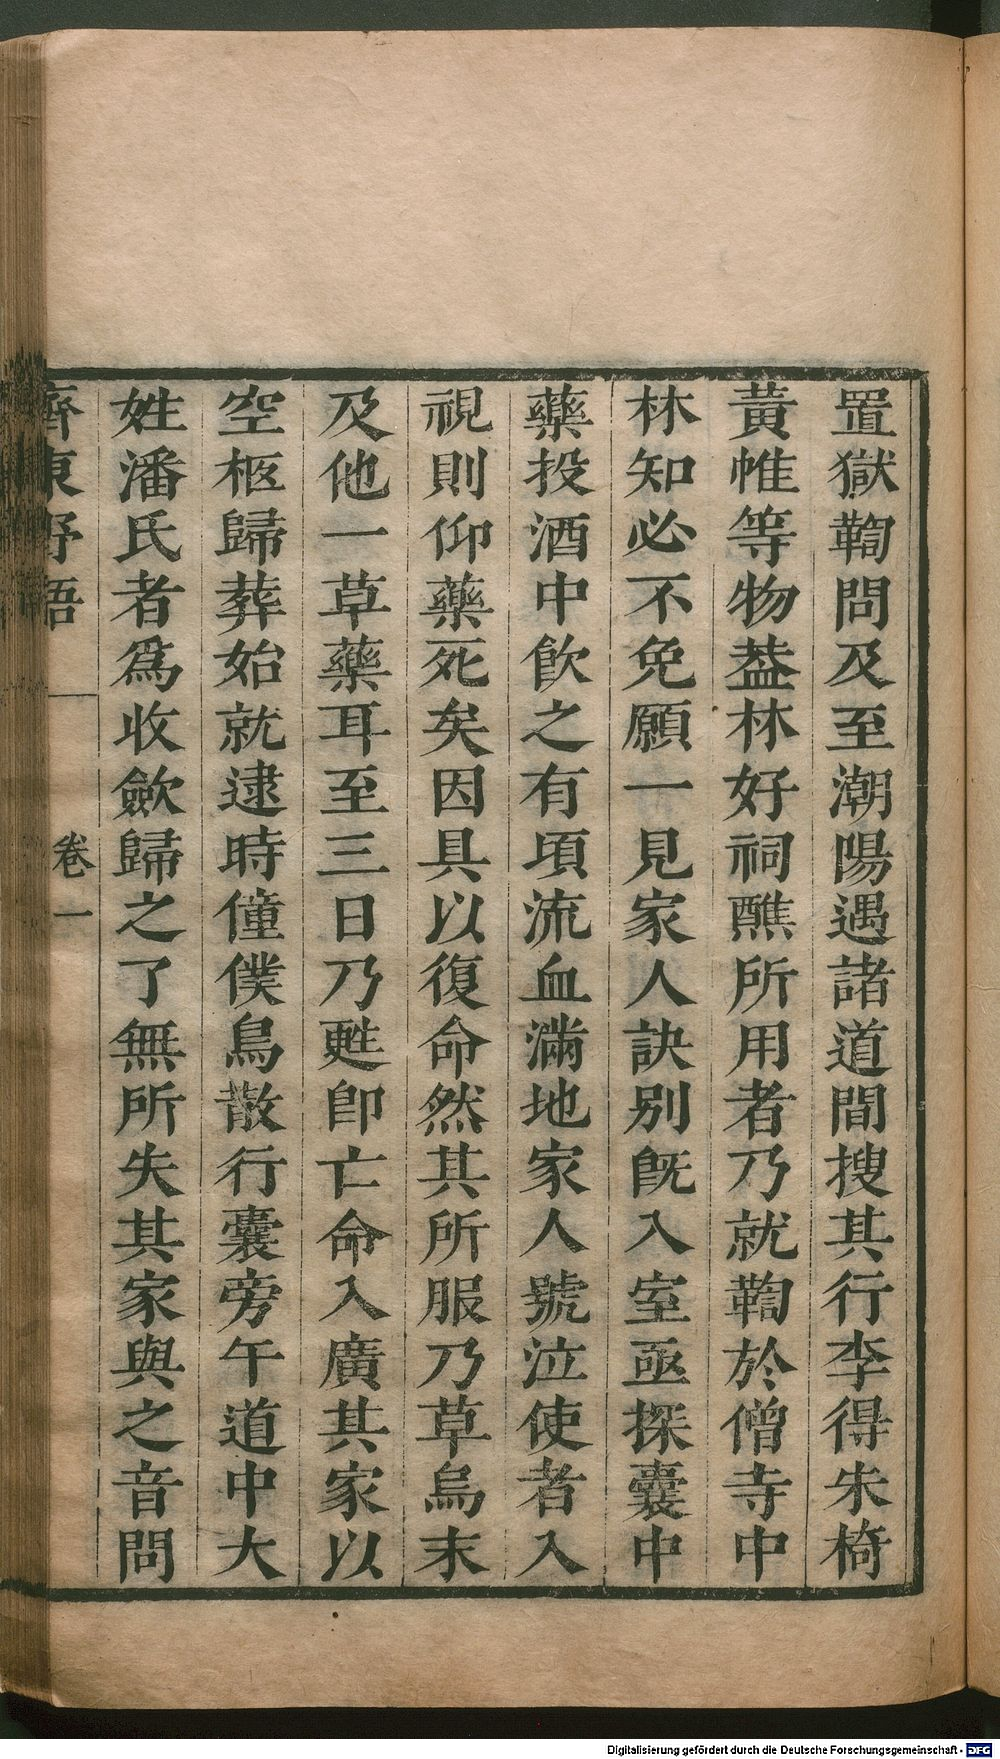 置獄鞫問及至潮陽遇諸道間搜其行李得朱椅
黃帷等物葢林好祠醮所用者乃就鞫於僧寺中
林知必不免願一見家人訣別旣入室亟探囊中
藥投酒中飮之有頃流血滿地家人號泣使者入
視則仰藥死矣因具以復命然其所服乃草烏末
及他一草藥耳至三日乃甦卽亡命入廣其家以
空柩歸葬始就逮時僮僕鳥散行囊旁午道中大
姓潘氏者爲收歛歸之了無所失其家與之音問
齊東野語
卷一
Digitalisierung gefördert durch die Deutsche Forschungsgemeinschaft - DFG